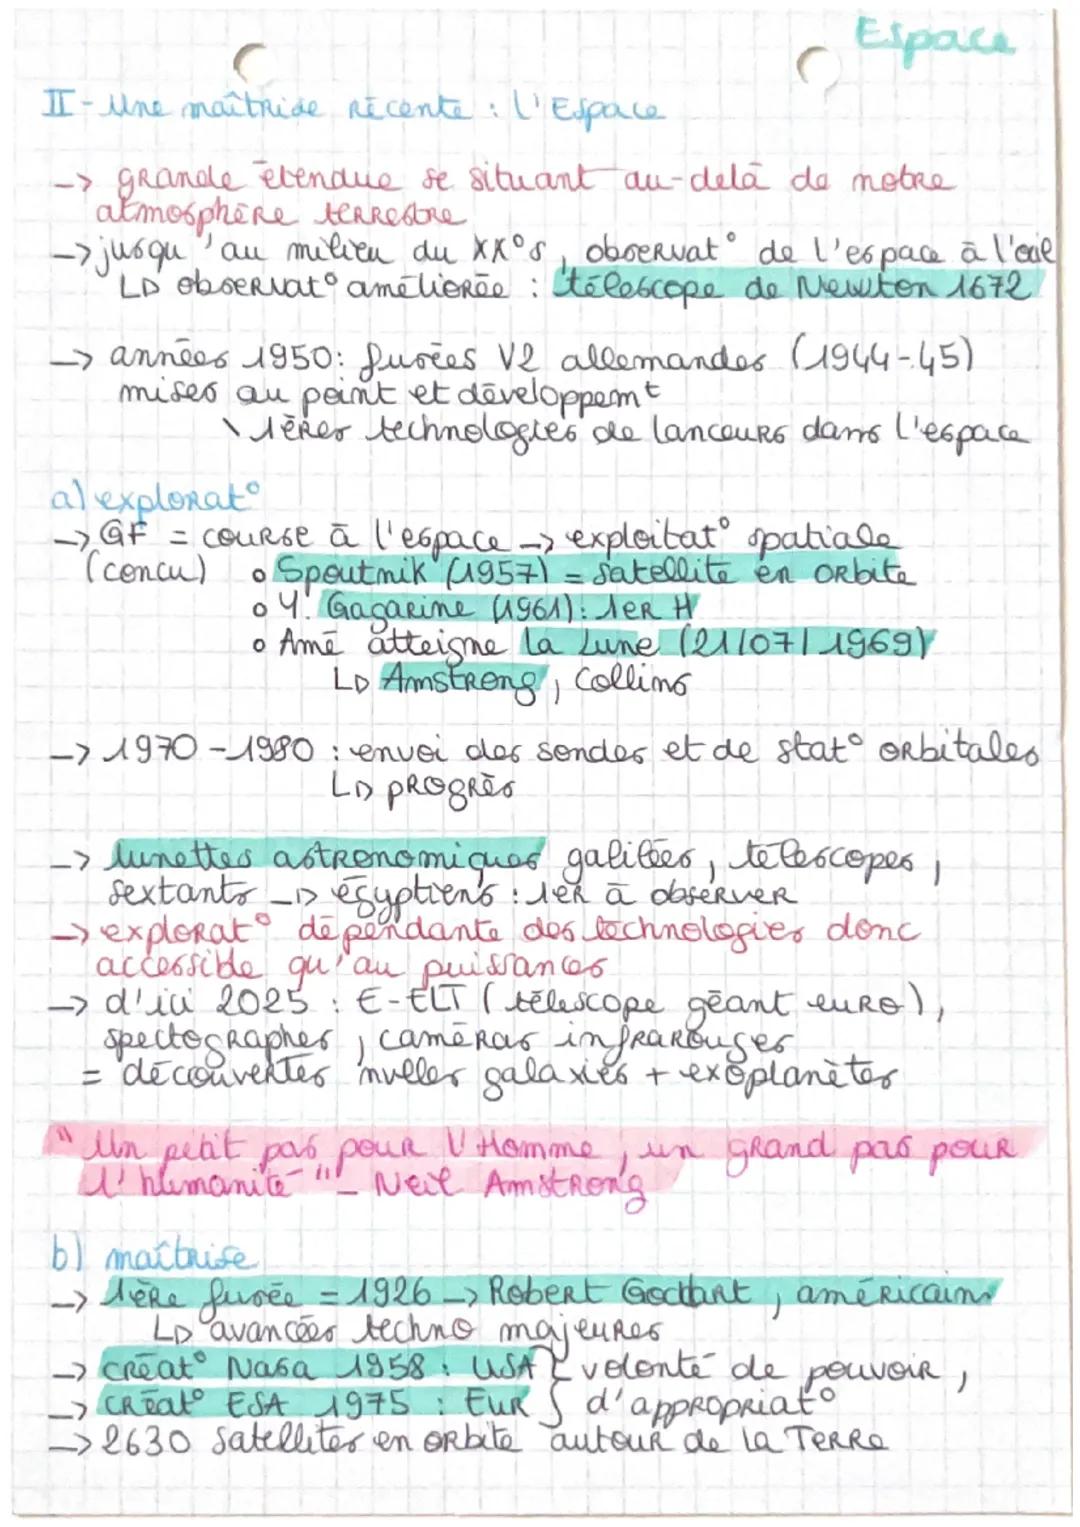 Espace
II - Une maîtrise récente : l'Espace
-> grande étendue se situant au-delà de notre
atmosphère terrestre
-> jusqu'au milieu du XX°s, observat° de l'espace à l'œil
L> observat° améliorée : télescope de Newton 1672
-> années 1950: fusées V2 allemandes (1944-45)
mises au point et développemt
\ 1ères technologies de lanceurs dans l'espace
a) explorat°
-> GF = course à l'espace -> exploitat° spatiale
(concu) o Spoutnik (1957) = satellite en orbite
o Y. Gagarine (1961): 1er H
o Amé atteigne la Lune (21/07/1969)
L> Amstrong, Collins
-> 1970-1980 : envoi des sondes et de stat° orbitales
L> progrès
-> lunettes astronomiques galilées, télescopes,
sextants -> égyptiens : 1er à observer
-> explorat° dépendante des technologies donc
accessible qu'au puissances
-> d'ici 2025 : E-ELT (télescope géant euro),
spectographes, caméras infrarouges
= découvertes nvelles galaxies + exoplanètes
"Un petit pas pour l'Homme, un grand pas pour
l'humanité" - Neil Amstrong
b) maîtrise
-> 1ère fusée = 1926 -> Robert Goddart, américain
L> avancées techno majeures
-> créat° Nasa 1958 : USA } volonté de pouvoir,
-> créat° ESA 1975 : EUR } d'appropriat°
-> 2630 satellites en orbite autour de la Terre